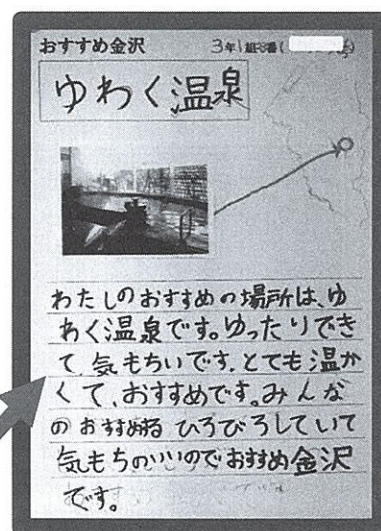 おすすめ金沢
3年1組8番(
ゆわく温泉
わたしのおすすめの場所は、ゆ
わく温泉です。ゆったりでき
て、気もちいです。とても温か
くて、おすすめです。みんな
のおすすめる ひろびろしていて
気もちのいいのでおすすめ金沢
です。